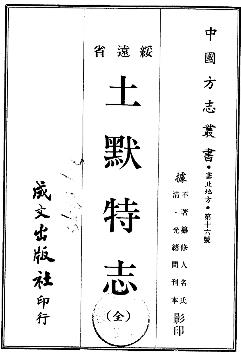 中國方志叢書・塞北地方・第十六號
據
不著纂修人名氏
清・光緒間刊本
影印
綏遠省
土默特志
(全)
成文出版社印行